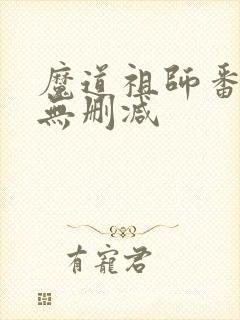 魔道祖師番
無刪減
有寵君